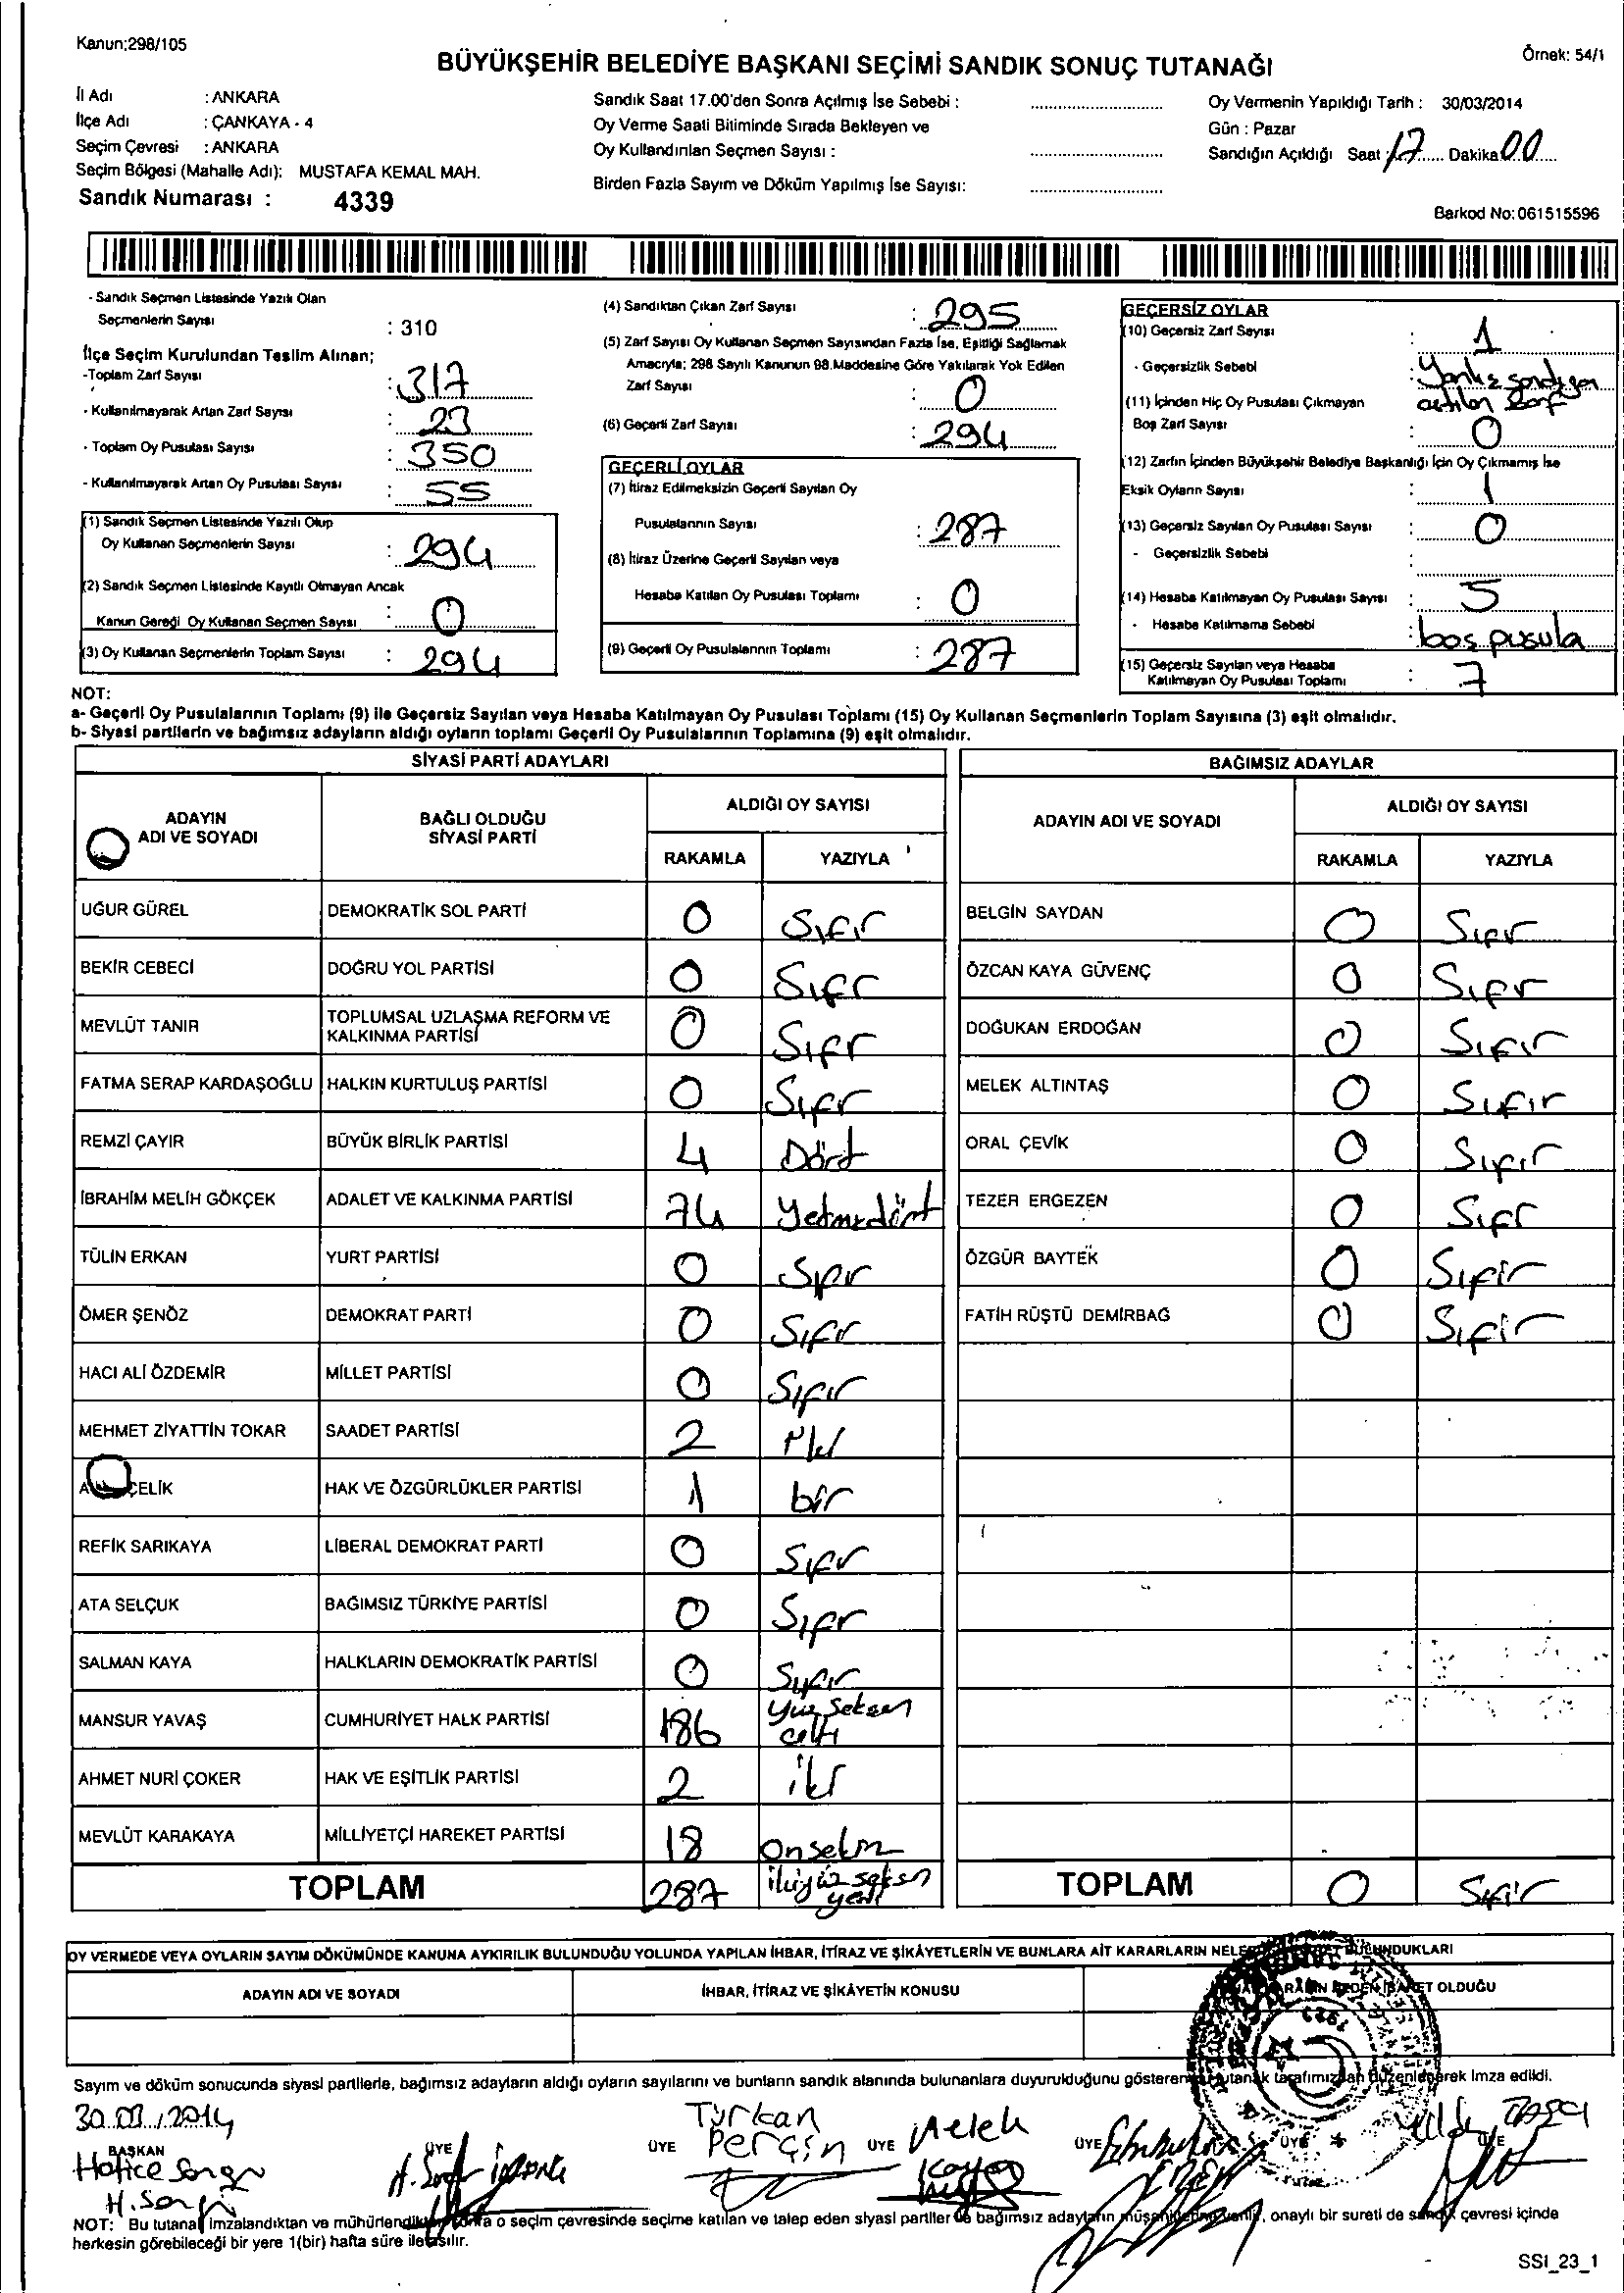 Kanun;298/105
Örnek: 54/1
BÜYÜKŞEHİR BELEDİYE BAŞKANI SEÇİMİ SANDIK SONUÇ TUTANAĞI
İl Adı : ANKARA
İlçe Adı : ÇANKAYA - 4
Seçim Çevresi : ANKARA
Seçim Bölgesi (Mahalle Adı): MUSTAFA KEMAL MAH.
Sandık Numarası : 4339
Sandık Saat 17.00'den Sonra Açılmış İse Sebebi :
Oy Verme Saati Bitiminde Sırada Bekleyen ve
Oy Kullandırılan Seçmen Sayısı :
Birden Fazla Sayım ve Döküm Yapılmış İse Sayısı:
Oy Vermenin Yapıldığı Tarih : 30/03/2014
Gün : Pazar
Sandığın Açıldığı Saat 17 Dakika 00
Barkod No: 061515596
- Sandık Seçmen Listesinde Yazılı Olan
Seçmenlerin Sayısı : 310
İlçe Seçim Kurulundan Teslim Alınan;
-Toplam Zarf Sayısı : 317
- Kullanılmayarak Artan Zarf Sayısı : 23
- Toplam Oy Pusulası Sayısı : 350
- Kullanılmayarak Artan Oy Pusulası Sayısı : 55
(1) Sandık Seçmen Listesinde Yazılı Olup
Oy Kullanan Seçmenlerin Sayısı : 294
(2) Sandık Seçmen Listesinde Kayıtlı Olmayan Ancak
Kanun Gereği Oy Kullanan Seçmen Sayısı : 0
(3) Oy Kullanan Seçmenlerin Toplam Sayısı : 294
(4) Sandıktan Çıkan Zarf Sayısı : 295
(5) Zarf Sayısı Oy Kullanan Seçmen Sayısından Fazla İse, Eşitliği Sağlamak
Amacıyla; 298 Sayılı Kanunun 98.Maddesine Göre Yakılarak Yok Edilen
Zarf Sayısı : 0
(6) Geçerli Zarf Sayısı : 294
GEÇERLİ OYLAR
(7) İtiraz Edilmeksizin Geçerli Sayılan Oy
Pusulalarının Sayısı : 287
(8) İtiraz Üzerine Geçerli Sayılan veya
Hesaba Katılan Oy Pusulası Toplamı : 0
(9) Geçerli Oy Pusulalarının Toplamı : 287
GEÇERSİZ OYLAR
(10) Geçersiz Zarf Sayısı : 1
- Geçersizlik Sebebi : Yanlış sandığa
atılan zarf
(11) İçinden Hiç Oy Pusulası Çıkmayan
Boş Zarf Sayısı : 0
(12) Zarfın İçinden Büyükşehir Belediye Başkanlığı İçin Oy Çıkmamış İse
Eksik Oyların Sayısı : 1
(13) Geçersiz Sayılan Oy Pusulası Sayısı : 0
- Geçersizlik Sebebi
(14) Hesaba Katılmayan Oy Pusulası Sayısı : 5
- Hesaba Katılmama Sebebi : boş pusula
(15) Geçersiz Sayılan veya Hesaba
Katılmayan Oy Pusulası Toplamı : 7
NOT:
a- Geçerli Oy Pusulalarının Toplamı (9) ile Geçersiz Sayılan veya Hesaba Katılmayan Oy Pusulası Toplamı (15) Oy Kullanan Seçmenlerin Toplam Sayısına (3) eşit olmalıdır.
b- Siyasi partilerin ve bağımsız adayların aldığı oyların toplamı Geçerli Oy Pusulalarının Toplamına (9) eşit olmalıdır.
SİYASİ PARTİ ADAYLARI
ADAYIN ADI VE SOYADI BAĞLI OLDUĞU SİYASİ PARTİ ALDIĞI OY SAYISI RAKAMLA YAZIYLA
UĞUR GÜREL DEMOKRATİK SOL PARTİ 0 Sıfır
BEKİR CEBECİ DOĞRU YOL PARTİSİ 0 Sıfır
MEVLÜT TANIR TOPLUMSAL UZLAŞMA REFORM VE KALKINMA PARTİSİ 0 Sıfır
FATMA SERAP KARDAŞOĞLU HALKIN KURTULUŞ PARTİSİ 0 Sıfır
REMZİ ÇAYIR BÜYÜK BİRLİK PARTİSİ 4 Dört
İBRAHİM MELİH GÖKÇEK ADALET VE KALKINMA PARTİSİ 74 Yetmişdört
TÜLİN ERKAN YURT PARTİSİ 0 Sıfır
ÖMER ŞENÖZ DEMOKRAT PARTİ 0 Sıfır
HACI ALİ ÖZDEMİR MİLLET PARTİSİ 0 Sıfır
MEHMET ZİYATTİN TOKAR SAADET PARTİSİ 2 iki
ÇELİK HAK VE ÖZGÜRLÜKLER PARTİSİ 1 bir
REFİK SARIKAYA LİBERAL DEMOKRAT PARTİ 0 Sıfır
ATA SELÇUK BAĞIMSIZ TÜRKİYE PARTİSİ 0 Sıfır
SALMAN KAYA HALKLARIN DEMOKRATİK PARTİSİ 0 Sıfır
MANSUR YAVAŞ CUMHURİYET HALK PARTİSİ 186 Yüz Seksen altı
AHMET NURİ ÇOKER HAK VE EŞİTLİK PARTİSİ 2 iki
MEVLÜT KARAKAYA MİLLİYETÇİ HAREKET PARTİSİ 18 Onsekiz
TOPLAM 287 ikiyüz seksen yedi
BAĞIMSIZ ADAYLAR
ADAYIN ADI VE SOYADI ALDIĞI OY SAYISI RAKAMLA YAZIYLA
BELGİN SAYDAN 0 Sıfır
ÖZCAN KAYA GÜVENÇ 0 Sıfır
DOĞUKAN ERDOĞAN 0 Sıfır
MELEK ALTINTAŞ 0 Sıfır
ORAL ÇEVİK 0 Sıfır
TEZER ERGEZEN 0 Sıfır
ÖZGÜR BAYTEK 0 Sıfır
FATİH RÜŞTÜ DEMİRBAĞ 0 Sıfır
TOPLAM 0 Sıfır
OY VERMEDE VEYA OYLARIN SAYIM DÖKÜMÜNDE KANUNA AYKIRILIK BULUNDUĞU YOLUNDA YAPILAN İHBAR, İTİRAZ VE ŞİKÂYETLERİN VE BUNLARA AİT KARARLARIN BULUNDUKLARI
ADAYIN ADI VE SOYADI İHBAR, İTİRAZ VE ŞİKÂYETİN KONUSU OLDUĞU
Sayım ve döküm sonucunda siyasi partilerle, bağımsız adayların aldığı oyların sayılarını ve bunların sandık alanında bulunanlara duyurulduğunu gösteren tutanak tarafımızdan düzenlenerek imza edildi.
30.03.2014
BAŞKAN ÜYE ÜYE ÜYE ÜYE ÜYE ÜYE
Türkan
Perçin
Melek
Kaya
Hatice
NOT: Bu tutanak imzalandıktan ve mühürlendikten sonra o seçim çevresinde seçime katılan ve talep eden siyasi partiler ve bağımsız adayların onaylı bir sureti de sandık çevresi içinde
herkesin görebileceği bir yere 1(bir) hafta süre ile asılır.
SSI_23_1